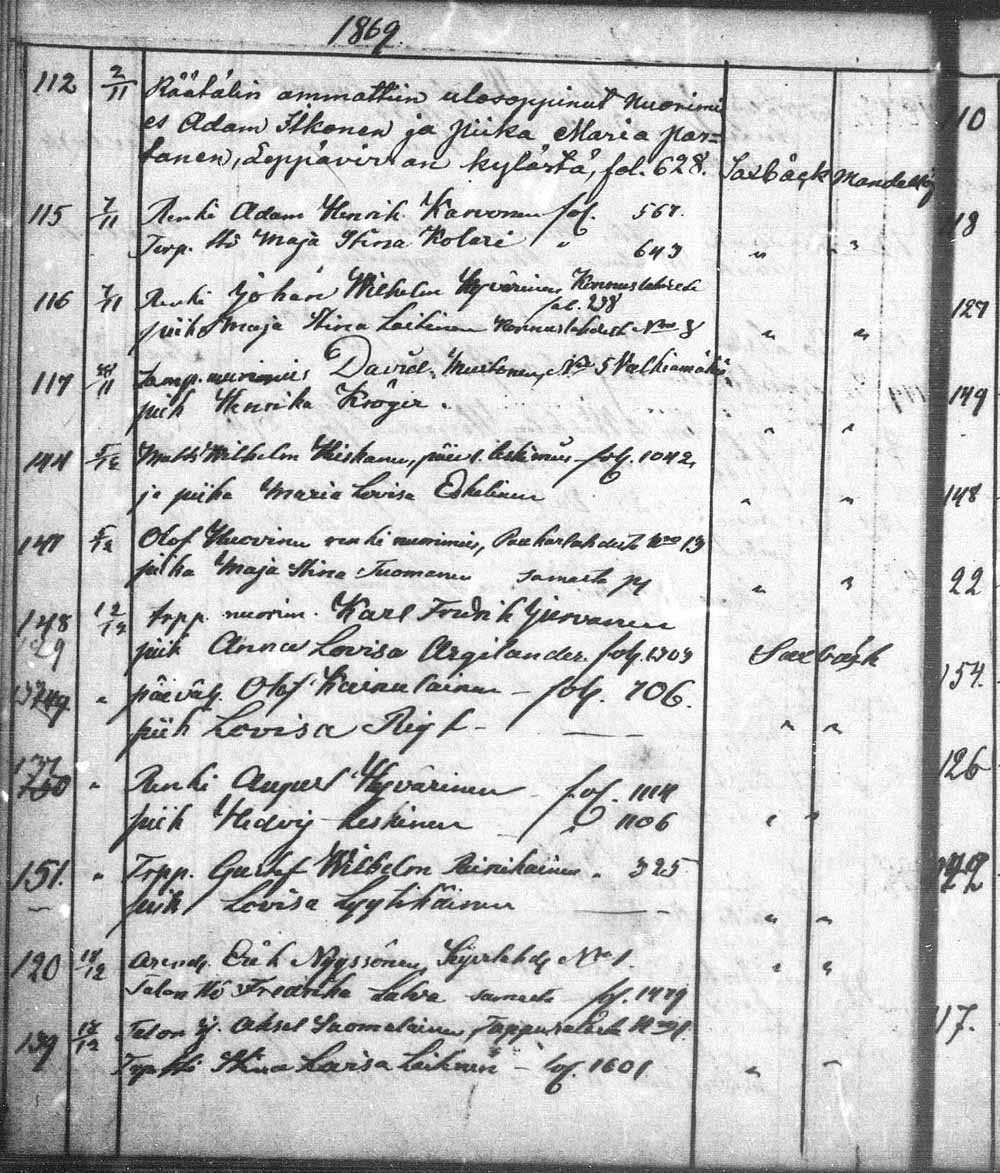 1869.
112 2/11 Räätälin ammattiin ulosoppinut Nuorimi
es Adam Itkonen ja piika Maria Par=
tanen, Leppävirran kylästä, fol. 628. Saxbäck Mandellöf
115 7/11 Renki Adam Henrik Karvonen fol. 567.
Torp. ttö Maja Stina Kolari " 643 " "
116 7/11 Renki Johan Wilhelm Hyvärinen, Konnuslahdesta
fol. 238
piika Maja Stina Leikinen Konnuslahdesta No 8 " "
117 /11 Lamp.nuorimies David Mustonen, No 5 Valkiamäki
piik Henrika Kröger. " "
144 5/12 Matts Wilhelm Hiskanen, päiv. leskimies fol. 1042
ja piika Maria Lovisa Eskelinen " "
147 5/12 Olof Huovinen renki nuorimies, Paukarlahdesta No 13
piika Maja Stina Tuomanen samasta " "
148 12/12 torp. nuorim. Karl Fredrik
129 piik Anna Lovisa Argilander. fol. 1303 Saxbäck
149. " päiväl. Olof Kainulainen – fol. 706.
piik Lovisa – " "
" Renki August Hyvärinen fol. 1114
piik Hedvig Leskinen " 1106 " "
151. " Torp. Gustaf Wilhelm Reinikainen " 325
piik Lovisa Lyytikäinen " "
120 18/12 Arend. Erik Nyyssönen, No 1. " "
Talon ttö Fredrika Latva samasta fol. 1479
139 18/12 Talon p. Aksel Suomalainen,
Torp ttö Stina Lovisa Leikinen – fol. 1601 " "
10
18
127
149
148
22
154.
126
17.